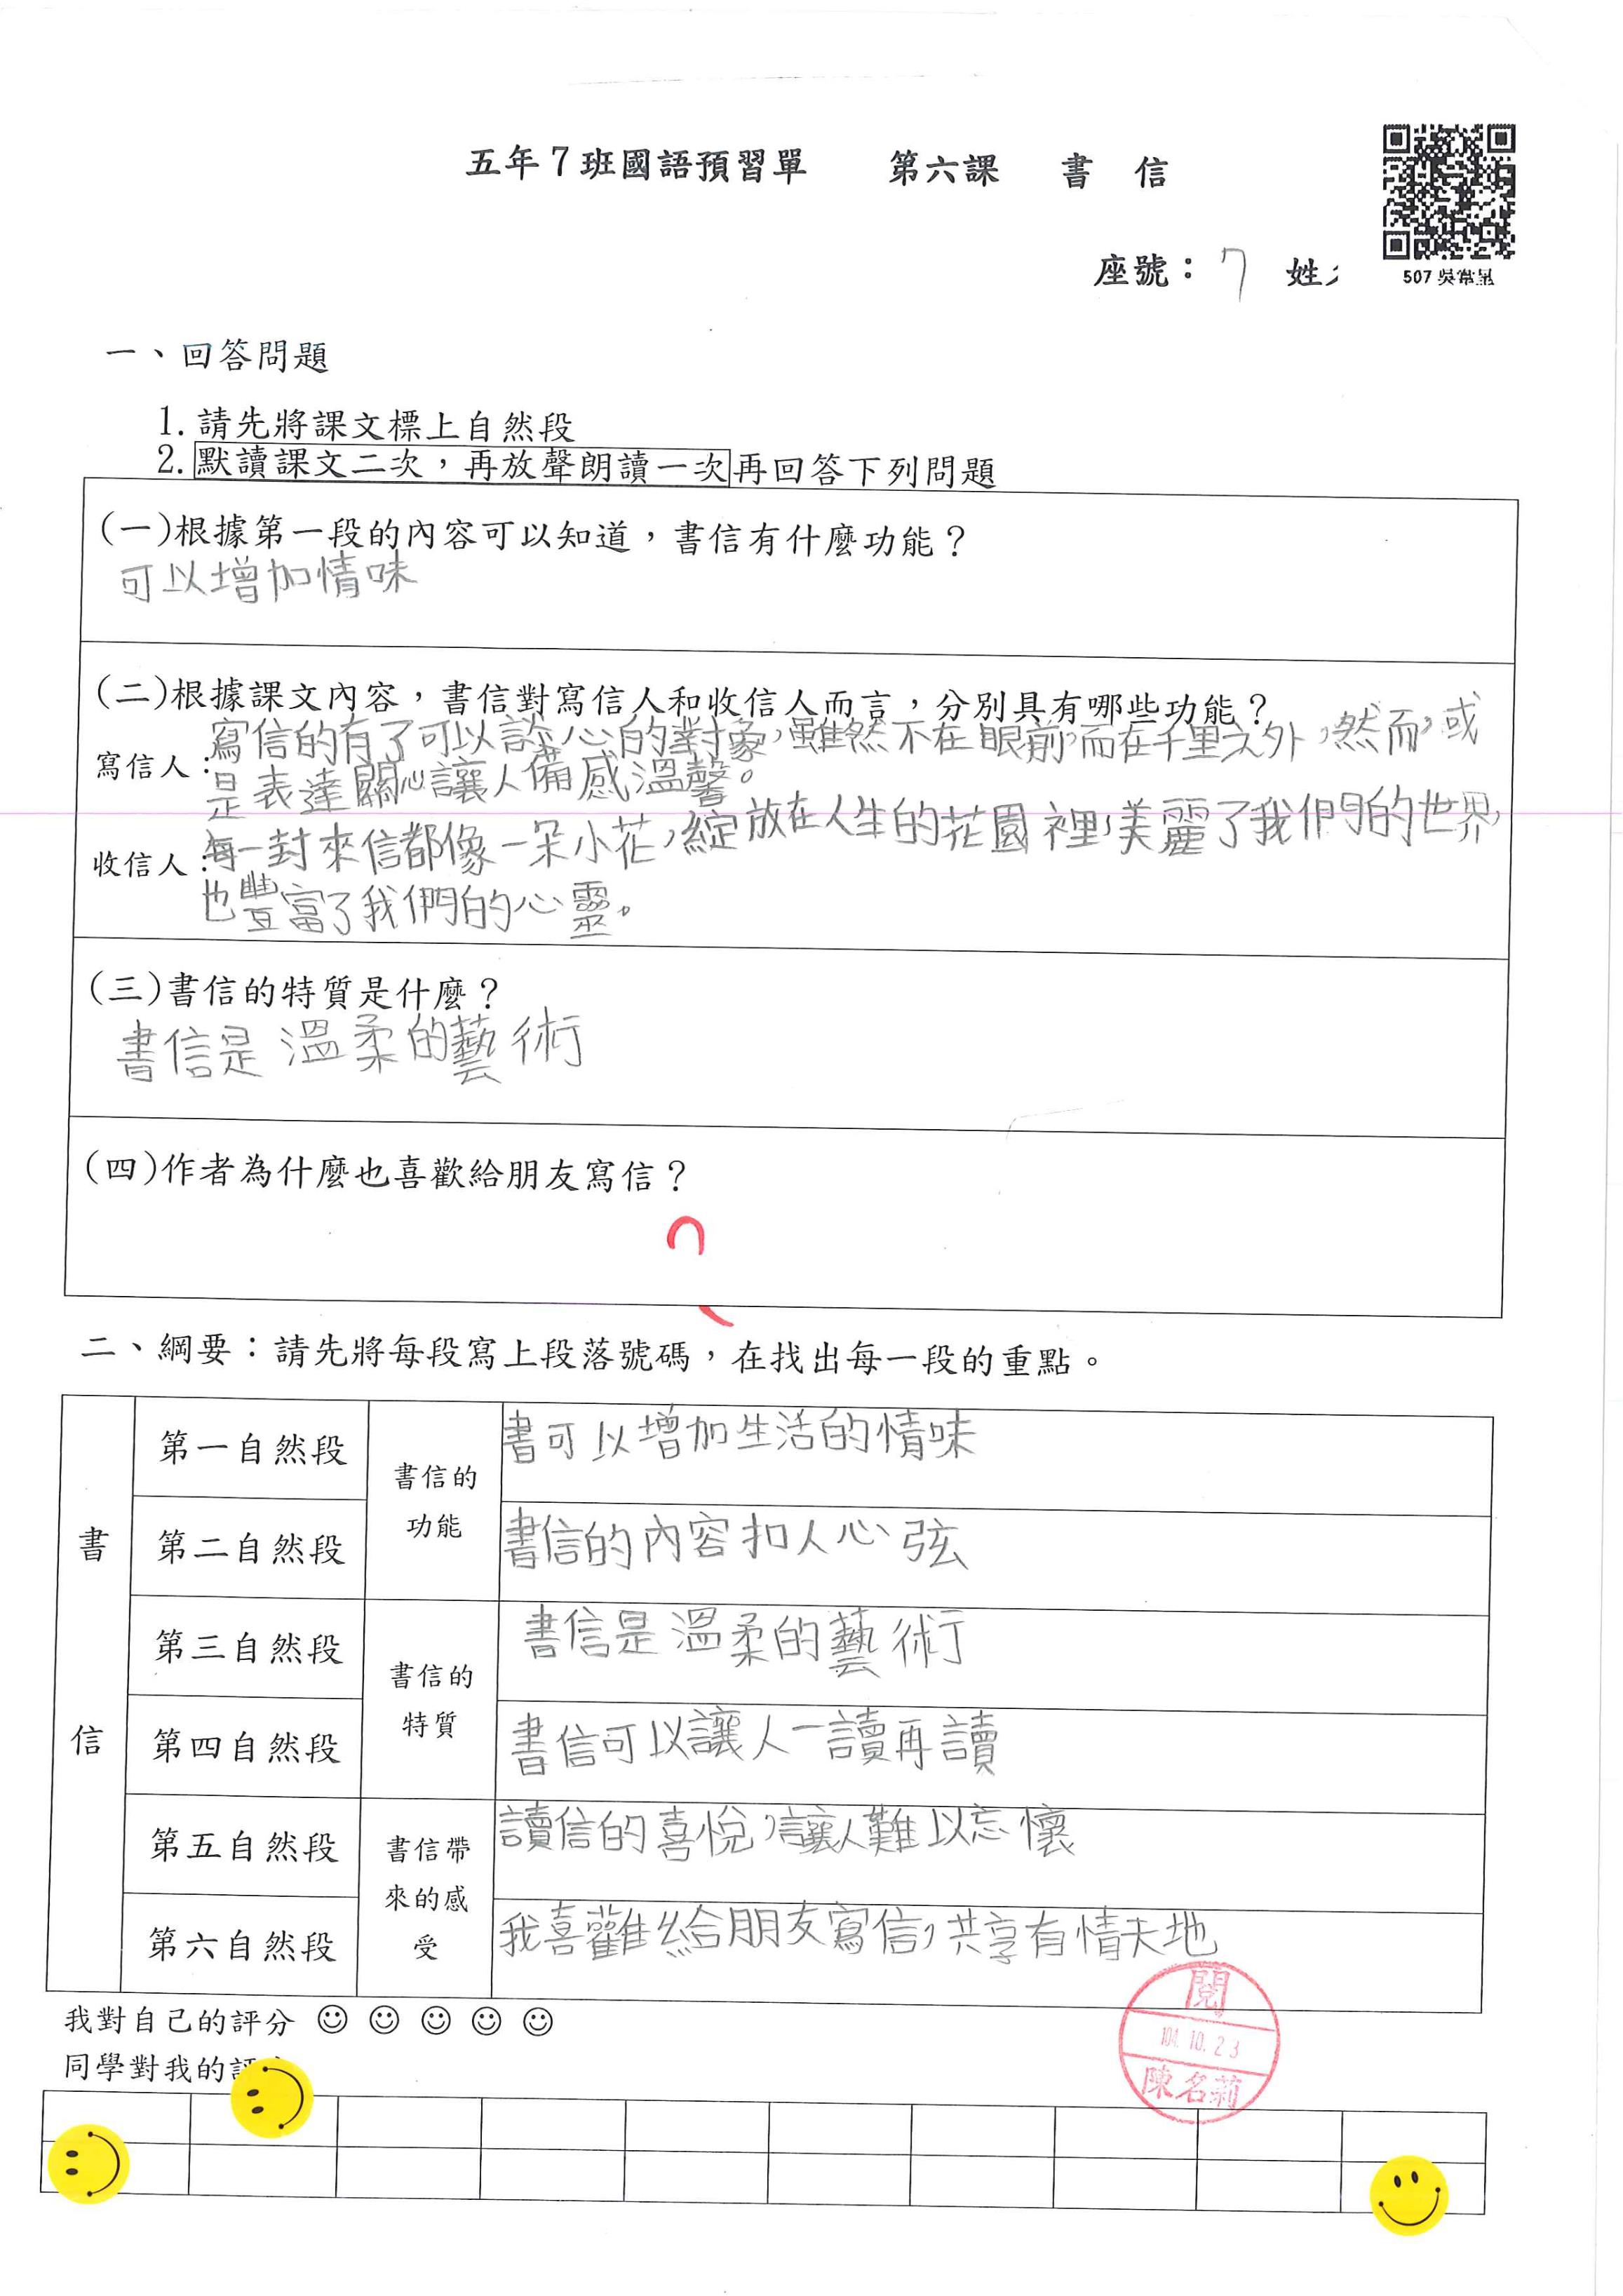 五年7班國語預習單 第六課 書 信
507 吳常
座號：7 姓
一、回答問題
1. 請先將課文標上自然段
2. 默讀課文二次，再放聲朗讀一次再回答下列問題
(一)根據第一段的內容可以知道，書信有什麼功能？
可以增加情味
(二)根據課文內容，書信對寫信人和收信人而言，分別具有哪些功能？
寫信人：寫信的有了可以談心的對象，雖然不在眼前，而在千里之外，然而，或
是表達關心讓人備感溫馨。
收信人：每一封來信都像一朵小花，綻放在人生的花園裡，美麗了我們的世界，
也豐富了我們的心靈。
(三)書信的特質是什麼？
書信是溫柔的藝術
(四)作者為什麼也喜歡給朋友寫信？
二、綱要：請先將每段寫上段落號碼，在找出每一段的重點。
書信
第一自然段 書信的功能 書可以增加生活的情味
第二自然段 書信的內容扣人心弦
第三自然段 書信的特質 書信是溫柔的藝術
第四自然段 書信可以讓人一讀再讀
第五自然段 書信帶來的感受 讀信的喜悅，讓人難以忘懷
第六自然段 我喜歡給朋友寫信，共享有情天地
我對自己的評分 ☺ ☺ ☺ ☺ ☺
同學對我的評
閱
104. 10. 23
陳名莉